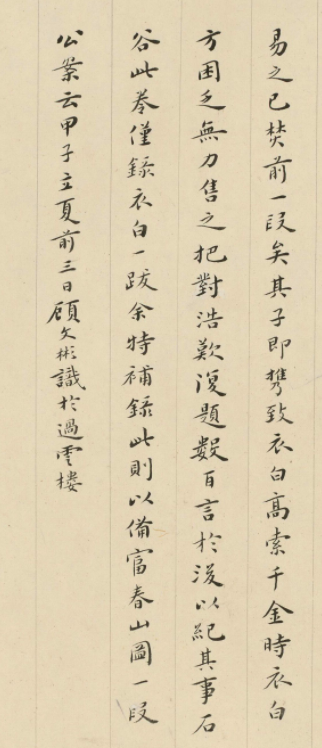 易之已焚前一段矣其子即携致衣白高索千金時衣白
方困乏無力售之把對浩歎復題數百言於後以紀其事石
谷此卷僅録衣白一跋余特補録此則以備富春山圖一段
公案云甲子立夏前三日顧文彬識於過雲樓